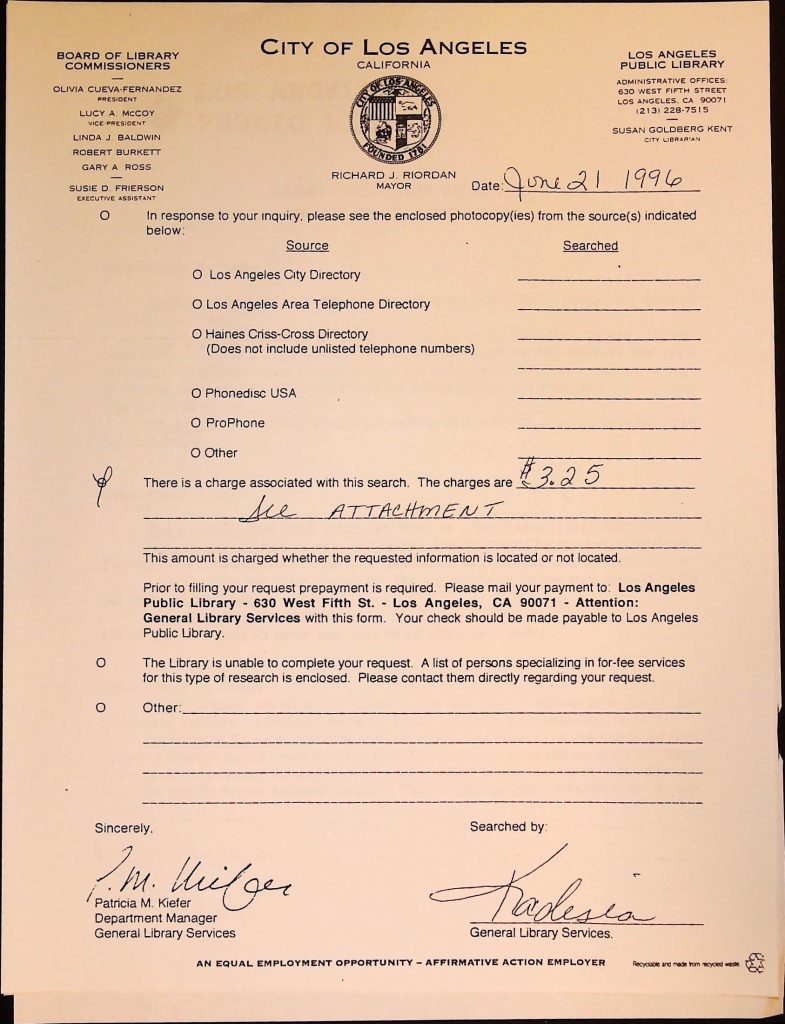 CITY OF LOS ANGELES
CALIFORNIA
BOARD OF LIBRARY
COMMISSIONERS
OLIVIA CUEVA-FERNANDEZ
PRESIDENT
LUCY A. McCOY
VICE-PRESIDENT
LINDA J. BALDWIN
ROBERT BURKETT
GARY A. ROSS
SUSIE D. FRIERSON
EXECUTIVE ASSISTANT
CITY OF LOS ANGELES
FOUNDED 1781
RICHARD J. RIORDAN
MAYOR
LOS ANGELES
PUBLIC LIBRARY
ADMINISTRATIVE OFFICES:
630 WEST FIFTH STREET
LOS ANGELES, CA 90071
(213) 228-7515
SUSAN GOLDBERG KENT
CITY LIBRARIAN
Date: June 21 1996
O In response to your inquiry, please see the enclosed photocopy(ies) from the source(s) indicated
below:
Source Searched
O Los Angeles City Directory
O Los Angeles Area Telephone Directory
O Haines Criss-Cross Directory
(Does not include unlisted telephone numbers)
O Phonedisc USA
O ProPhone
O Other
There is a charge associated with this search. The charges are $3.25
See ATTACHMENT
This amount is charged whether the requested information is located or not located.
Prior to filling your request prepayment is required. Please mail your payment to: Los Angeles
Public Library - 630 West Fifth St. - Los Angeles, CA 90071 - Attention:
General Library Services with this form. Your check should be made payable to Los Angeles
Public Library.
O The Library is unable to complete your request. A list of persons specializing in for-fee services
for this type of research is enclosed. Please contact them directly regarding your request.
O Other:
Sincerely, Searched by:
P. M. Kiefer
Patricia M. Kiefer
Department Manager
General Library Services
Kadesia
General Library Services.
AN EQUAL EMPLOYMENT OPPORTUNITY – AFFIRMATIVE ACTION EMPLOYER
Recyclable and made from recycled waste.